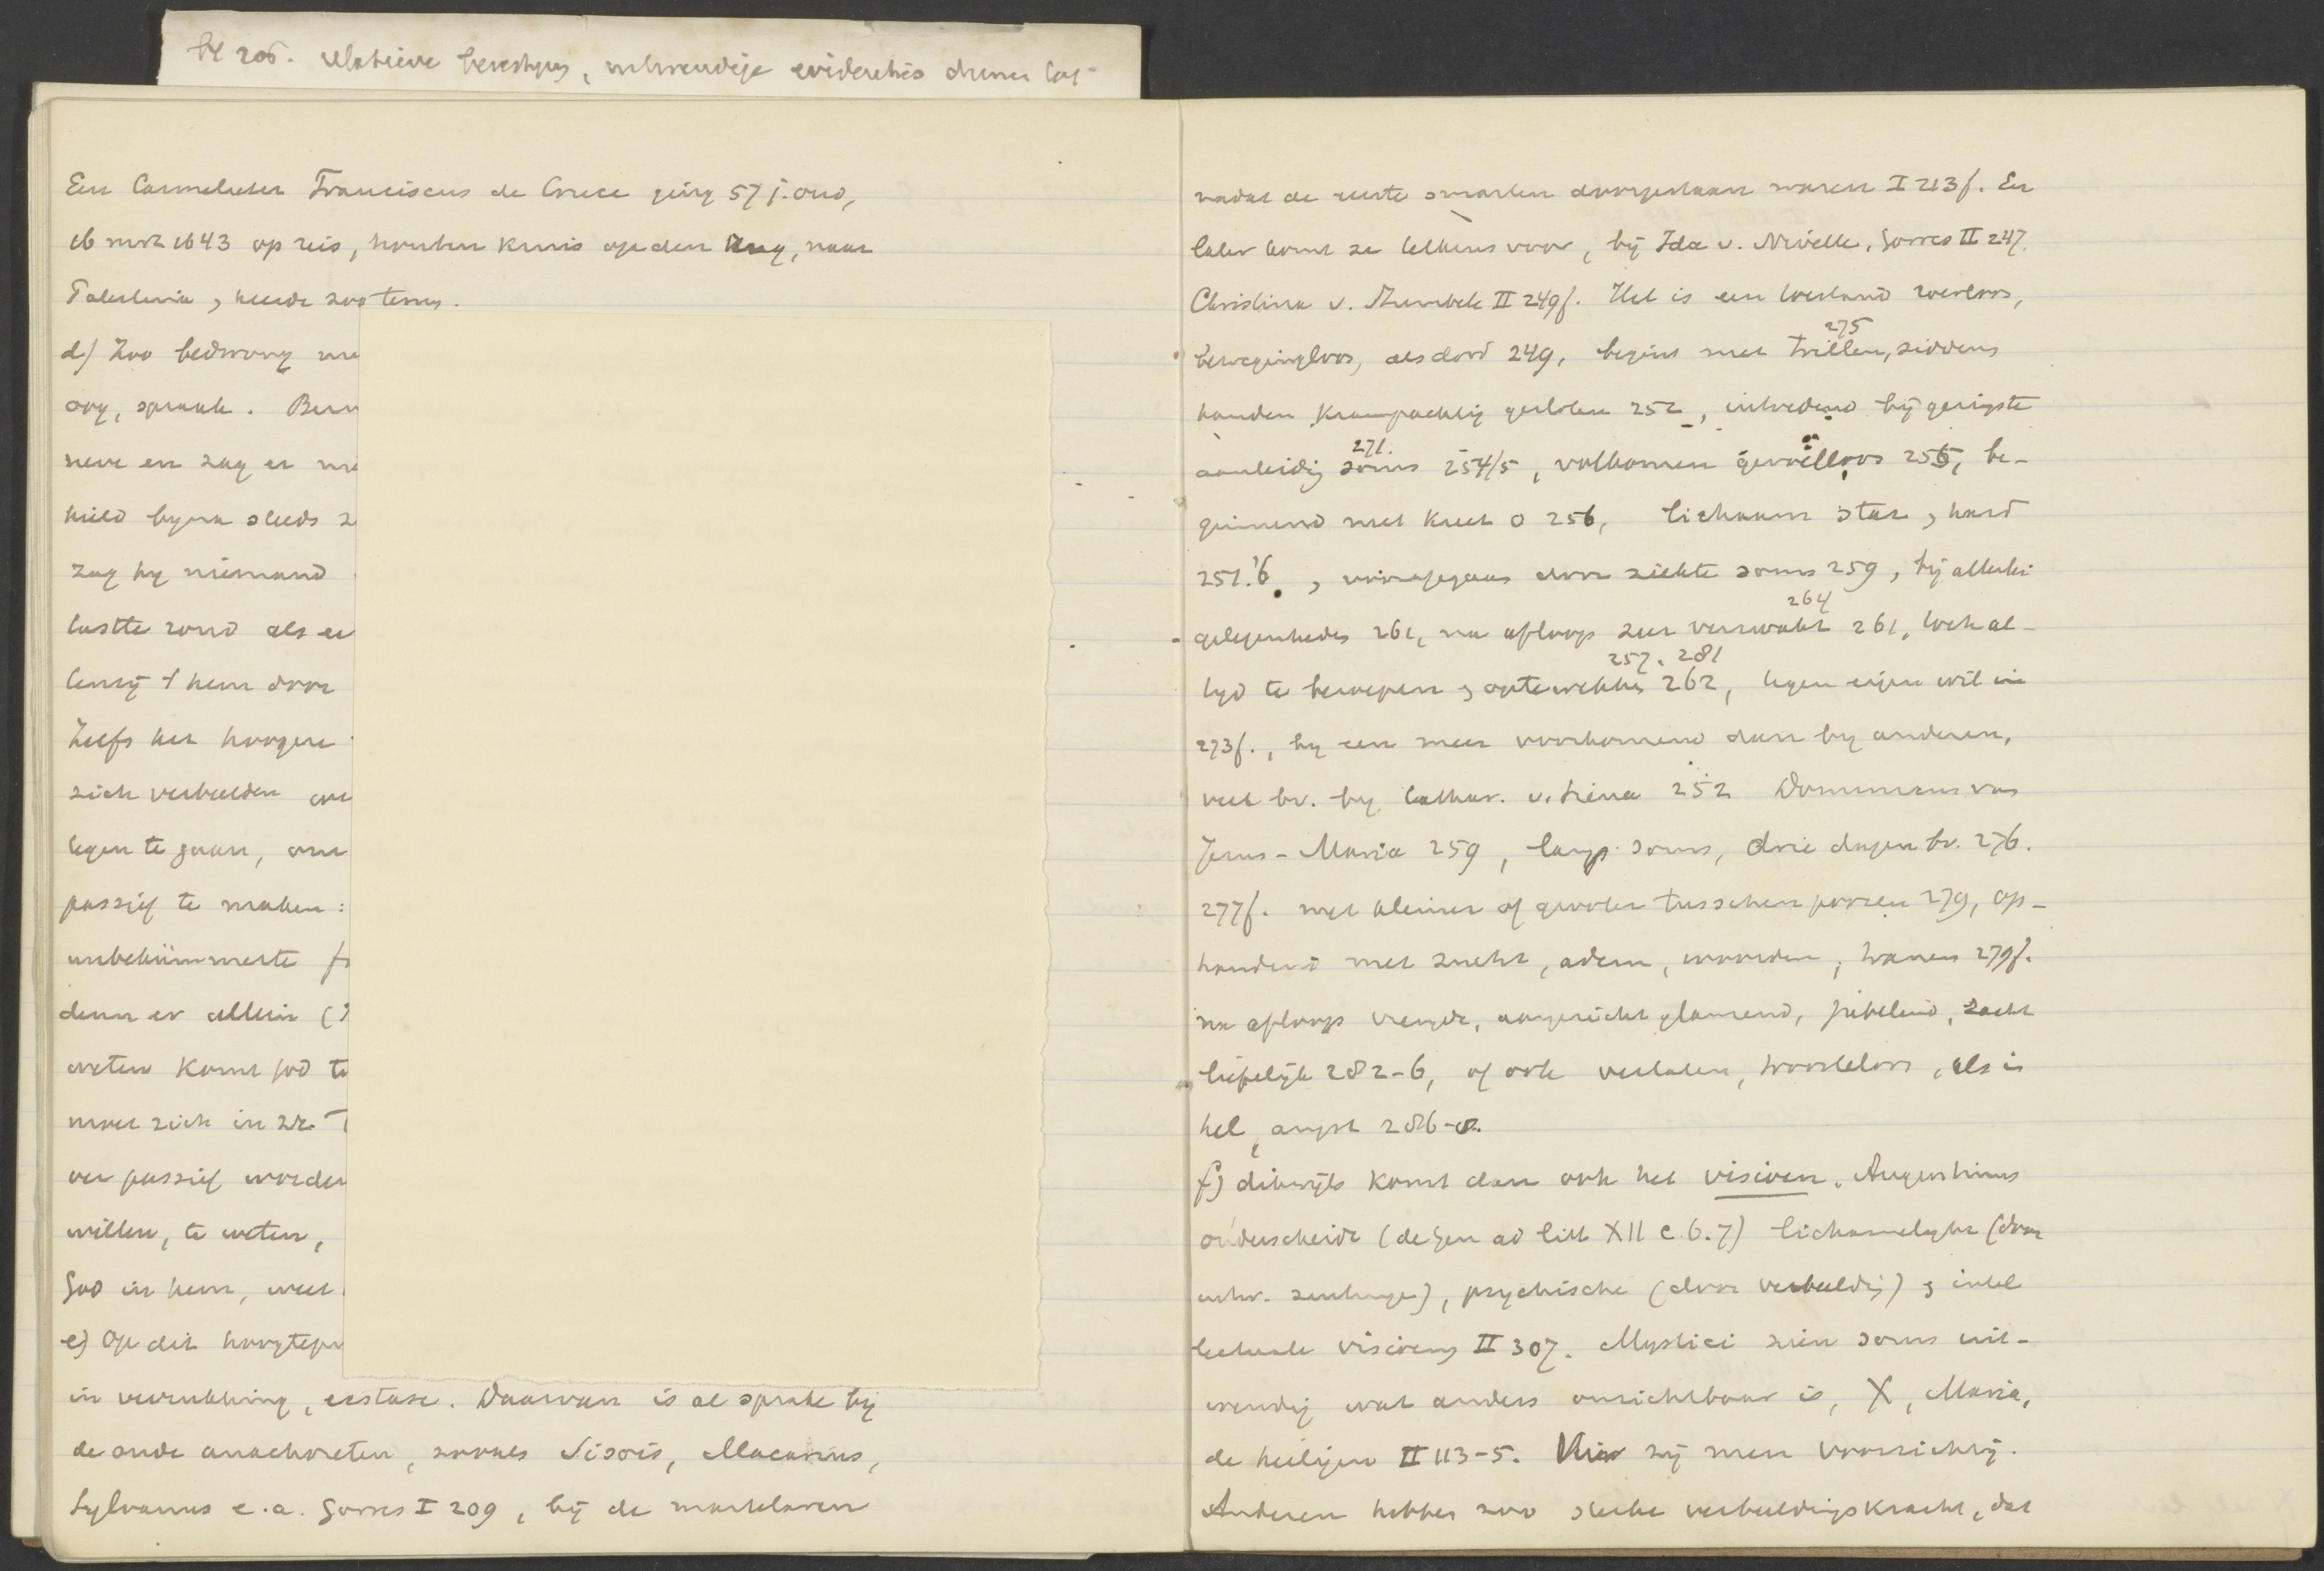 bl 206. relatieve
Een Carmelieter Franciscus de Cruce ging 57 j. oud,
16 mrt 1643 op reis, houten kruis op den rug, naar
Palestina, keerde zoo terug.
d) Zoo bedwong me
oog, spraak. Bern
neve en zag er nie
hield byna steeds z
zag hy niemand
tastte rond als ee
lenig t hem door
Zelfs het hoogere
zich verbeelden
tegen te gaan, om
passief te maken:
unbekümmerte f
denn er allein (
weten komt God te
moet zich in zr. T
ver passief worden
willen, te weten,
God in hem, weet
e) Op dit hoogtepu
in verrukking, ecstase. Daarvan is al sprake by
de oude anachoreten, zooals Sisois, Macarius,
Sylvanus e.a. Görres I 209, bij de martelaren
nadat de eerste smarten doorgestaan waren I 213f. En
later komt ze telkens voor, bij Ida v. Nivelle, Görres II 247.
Christina v. II 249f. Het is een toestand roerloos,
bewegingloos, als dood 249, begint met trillen, 275 siddens
handen krampachtig gesloten 252, intredend bij geringste
aanleidig soms 271. 254/5, volkomen gevoelloos 255, be-
ginnend met kreet o 256, lichaam star, hard
251.'6., voorafgegaan door ziekte soms 259, bij allerlei
gelegenheden 261, na afloop zeer vermoeid 264 261, toch al-
tyd te beroepen & optewekken 257. 281 262, tegen eigen wil in
273f., by een meer voorkomend dan by anderen,
veel bv. by Cathar. v. Siena 252 Dominicus van
Jesus-Maria 259, lang soms, drie dagen bv. 276.
277f. met kleiner of grooter tusschenpoozen 279, op-
houdend met zucht, adem, woorden, tranen 279f.
na afloop vreugde, aangezicht glanzend, jubelend, zacht
liefelijk 282-6, of ook verlaten, troosteloos, als in
hel, angst 286-8.
f) dikwijls komt dan ook het visioen. Augustinus
onderscheidt (de Gen ad litt XII c. 6. 7) lichamelyke (door
uitw. zintuigen), psychische (door verbeeldig) & intel
lectuele visioens II 307. Mystici zien soms uit-
wendig wat anders onzichtbaar is, X, Maria,
de heiligen II 113-5. Hier zij men voorzichtig.
Anderen hebben zoo sterke verbeeldingskracht, dat